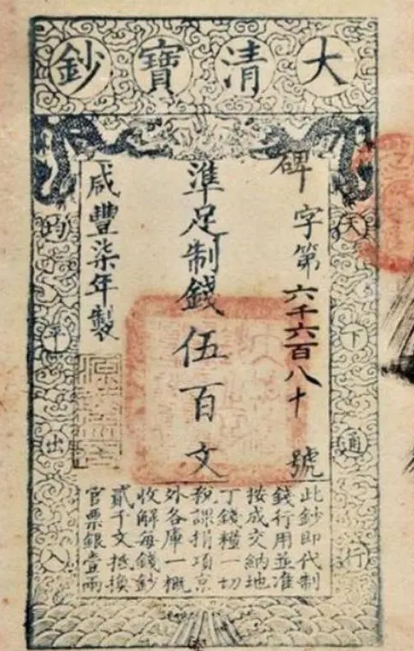 大清寶鈔
天下通行
碑字第六千六百八十號
準足制錢伍百文
咸豐柒年製
均平出入
此鈔即代制
錢行用並准
按成交納地
丁錢糧一切
稅課捐項京
外各庫一概
收解每錢鈔
貳千文抵換
官票銀壹兩